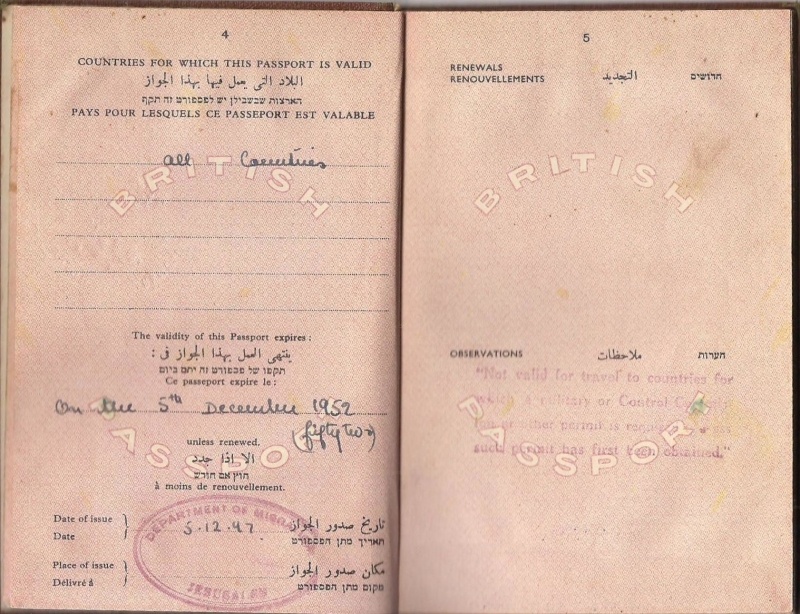 4
COUNTRIES FOR WHICH THIS PASSPORT IS VALID
البلاد التى يعمل فيها بهذا الجواز
הארצות שבשבילן יש לפספורט זה תקף
PAYS POUR LESQUELS CE PASSEPORT EST VALABLE
all Countries
BRITISH
The validity of this Passport expires:
ينتهى العمل بهذا الجواز فى :
תקפו של פספורט זה יתם ביום
Ce passeport expire le:
On the 5th December 1952
(fifty two)
PASSPORT
unless renewed.
الا اذا جدد
חוץ אם חודש
à moins de renouvellement.
Date of issue
Date
5.12.47
تاريخ صدور الجواز
תאריך מתן הפספורט
Place of issue
Délivré à
مكان صدور الجواز
מקום מתן הפספורט
DEPARTMENT OF
JERUSALEM
5
RENEWALS التجديد חדושים
RENOUVELLEMENTS
BRITISH
OBSERVATIONS ملاحظات הערות
"Not valid for travel to countries for
which a military or Control
or other permit is
such permit has first been obtained."
PASSPORT